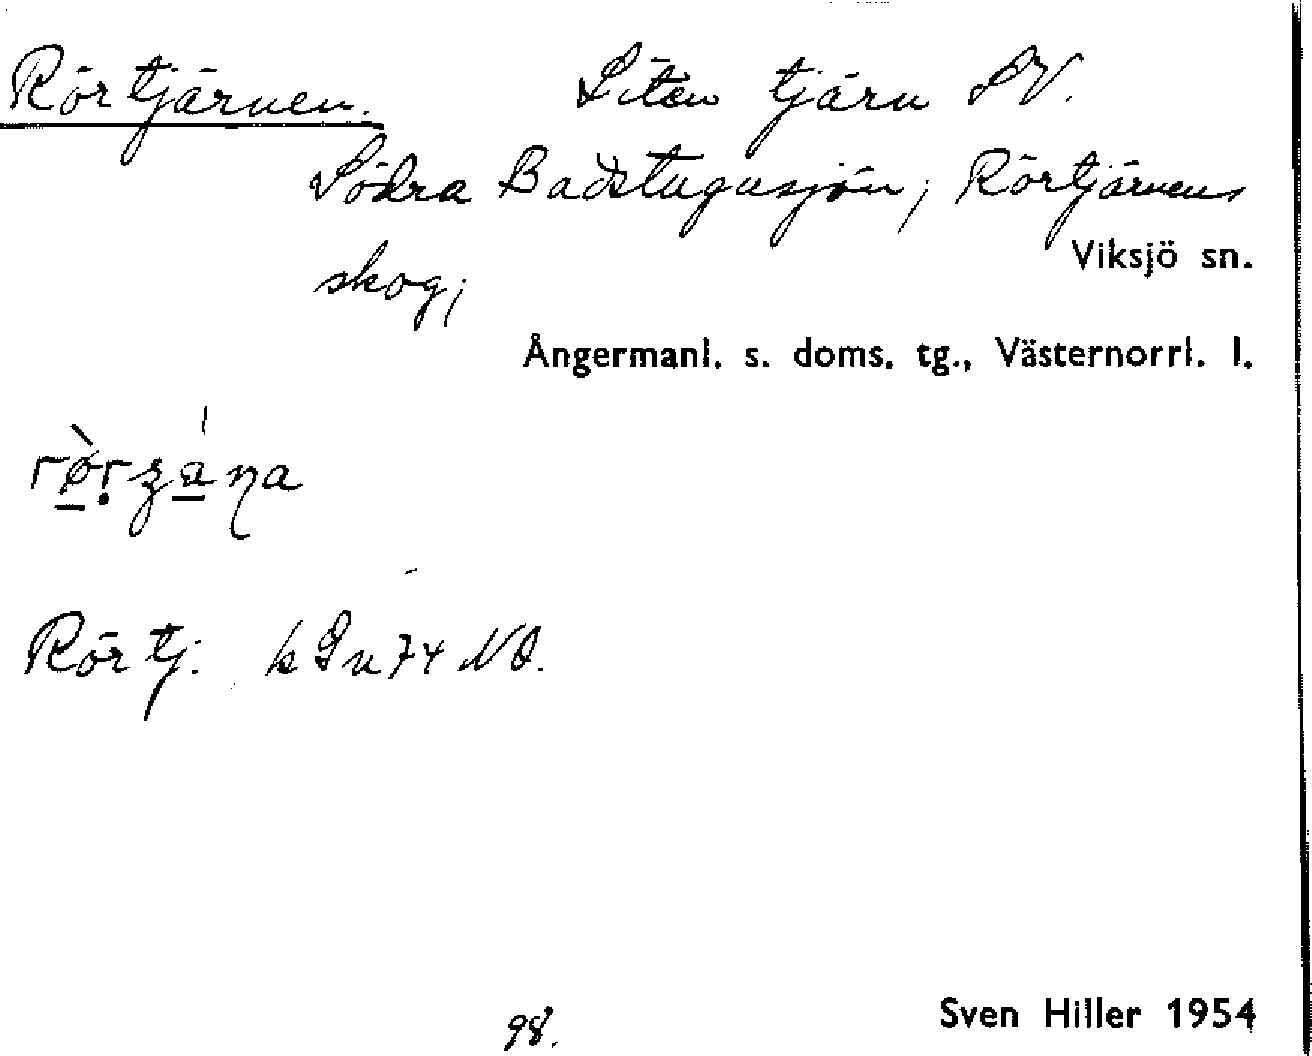 Rörtjärnen. Liten tjärn SV.
Södra Badstugusjön; Rörtjärnens
skog;
Viksjö sn.
Ångermanl. s. doms. tg., Västernorrl. l.
Rörtj. NO.
98.
Sven Hiller 1954